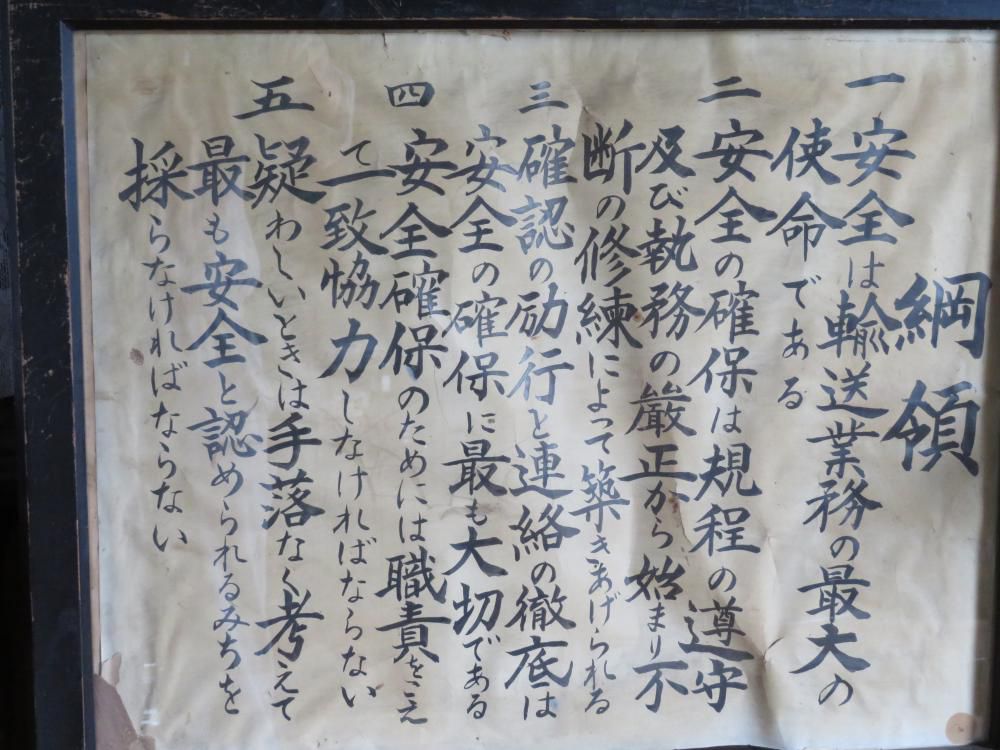 綱領
一 安全は輸送業務の最大の
使命である
二 安全の確保は規程の遵守
及び執務の厳正から始まり不
断の修練によって築きあげられる
三 確認の励行と連絡の徹底は
安全の確保に最も大切である
四 安全確保のためには職責をこえ
て一致協力しなければならない
五 疑わしいときは手落なく考えて
最も安全と認められるみちを
採らなければならない